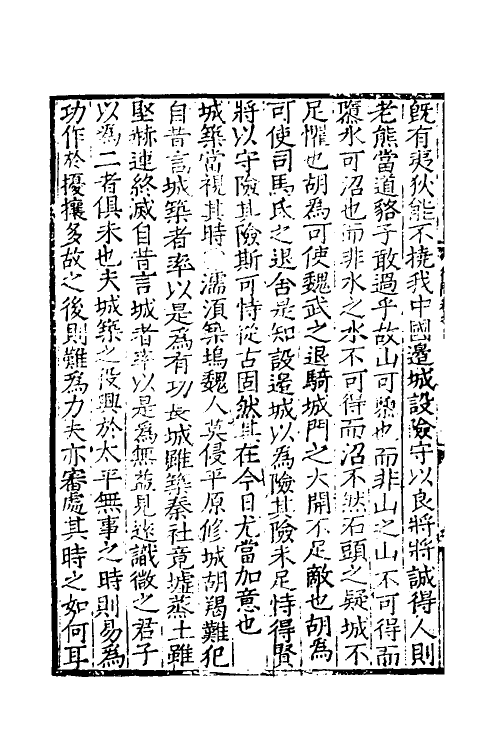 既有夷狄能不撓我中國邊城設險守以良將將誠得人則
老熊當道貉子敢過乎故山可鑿也而非山之山不可得而
鑿水可沼也而非水之水不可得而沼不然石頭之疑城不
足懼也胡為可使魏武之退騎城門之大開不足敵也胡為
可使司馬氏之退舍是知設邊城以為險其險未足恃得賢
將以守險其險斯可恃從古固然其在今日尤當加意也
城築當視其時 濡湏築塢魏人莫侵平原修城胡羯難犯
自昔言城築者率以是為有功長城雖築秦社竟墟蒸土雖
堅赫連終滅自昔言城者率以是為無益見迷識微之君子
以為二者俱未也夫城築之役興於太平無事之時則易為
功作於擾攘多故之後則難為力夫亦審處其時之如何耳